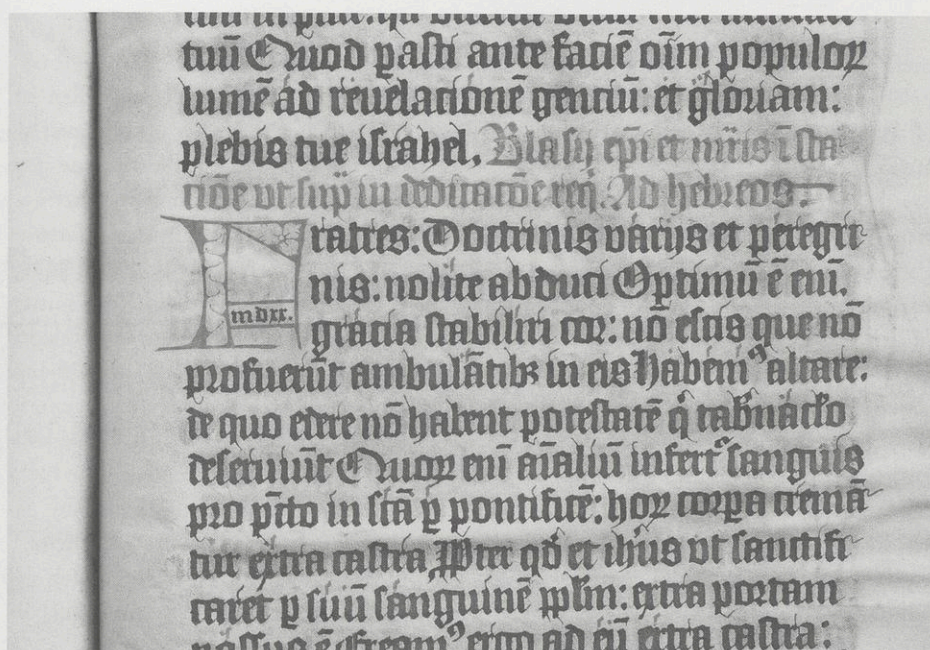 tuū Quod ꝑasti ante faciē oīm populoꝝ
lumē ad reuelacionē genciū: et gloriam:
plebis tue israhel. Blasij ep̄i et mr̄is ī sta
ciōe vt supͣ in dedicacōe req̄. Ad hebreos.
Fratres: Doctrinis varijs et peregri
nis: nolite abduci Optimū ē eni.
mdxx.
gracia stabiliri cor: nō escis que nō
profuerūt ambulātibꝫ in eis Habemꝰ altare:
de quo edere nō habent potestatē q̇ tab̄nac̄lo
deseruiūt Quoꝝ enī aīaliū infertᷣ sanguis
pro pc̄cto in sc̄ā ꝑ pontificē: hoꝝ corꝑa cremā
tur extra castra Ꝓpter qd̄ et ih̄us vt sanctifi
caret ꝑ suū sanguinē pplm̄: extra portam
passus ē Exeamꝰ ergo ad eū extra castra: